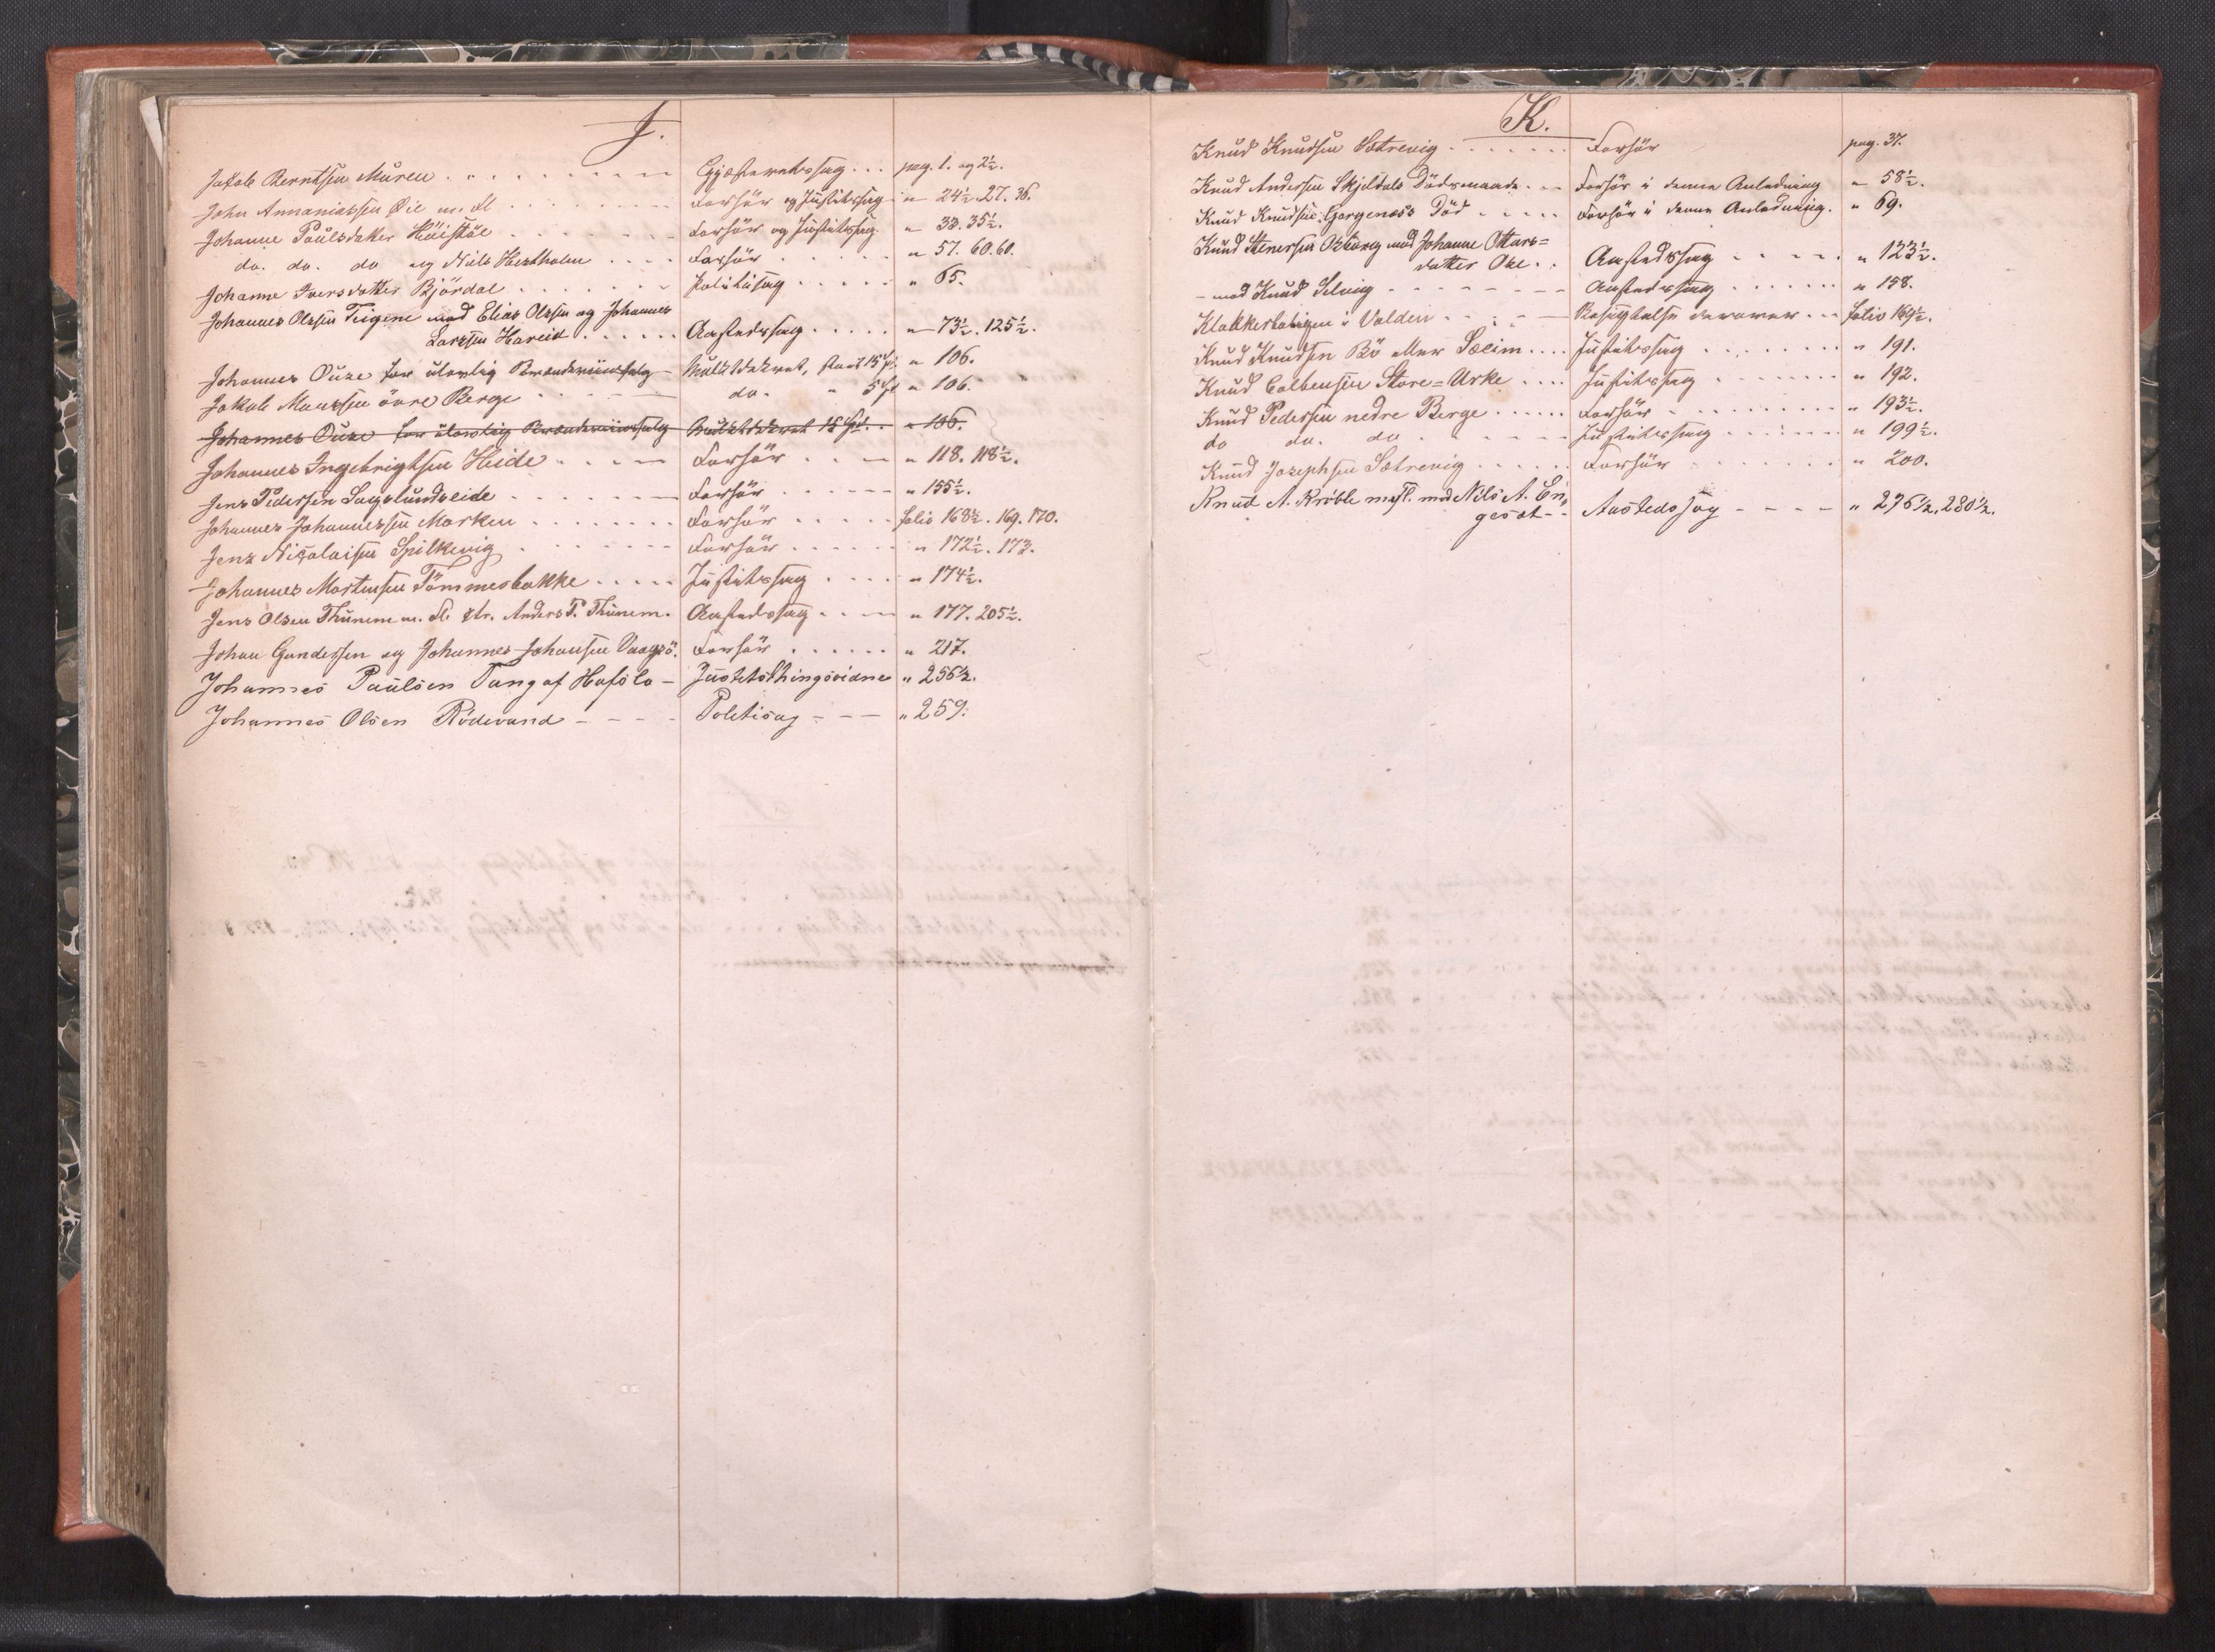 J.
Jakob Berntsen Muren . . . . . . Gjæsteretssag . . . pag. 1. og 2½.
John Annaniassen Øie m. fl . . . Forhör og Justitssag " 24½. 27. 36.
Johanne Paulsdatter . . . Forhör og Justitssag. " 33. 35½.
do. do. do og Nils . . . Forhör . . . " 57. 60. 61.
Johanne Iversdatter Björdal . . . Politisag . . . . " 65.
Johannes Olssen Teigene mod Elias Olssen og Johannes
Larssen Hareid . . . . . Aastedssag . . . . . " 73½. 125½.
Johannes Ouse for ulovlig Brændeviinssalg Mulktdekret, " 106.
Jakob Monssen övre Berge do. " 5 " 106.
Johannes Ouse for ulovlig Brændeviinssalg Mulktdekret 15 " 106.
Johannes Ingebrigtsen Heide . . . . Forhör . . . " 118. 118½.
Jens Pedersen . . . Forhör . . . " 155½.
Johannes Johannessen Marken . . . Forhör . . . folio 168½. 169. 170.
Jens Nicolaisen Spilkevig . . . Forhör . . . " 172½. 173.
Johannes Martensen Tömmerbakke . . . . . Justitssag . . . . " 174½.
Jens Olsen Thunem m. fl. ctr. Anders P. Thunem. Aastedssag . . . " 177. 205½.
Johan Gundersen og Johannes Johansen Vaagsö. Forhör . . . . . " 217.
Johannes Paulsen Tang af Hafslo - Justitsthingsvidne " 256½.
Johannes Olsen Rödevand - - - - Politisag - - - " 259.
K.
Knud Knudsen Sætrevig . . . . . . Forhör pag. 37.
Knud Andersen Skjeldals Dödsmaade . . Forhör i denne Anledning " 58½.
Knud Knudsen Gjergenæss Död . . . . Forhör i denne Anledning. " 69.
Knud Stenersen mod Johanne Ottars=
datter Ose . . Aastedssag . . . . " 123½.
- mod Knud . . . Aastedssag . . . . . " 158.
Klokkerboligen i Volden . . . Besigtelse derover . . folio 164½.
Knud Knudsen Bö eller Soeim . . . . Justitssag . . . . " 191.
Knud Colbensen Store=Urke . . . . Justitssag . . . . " 192.
Knud Pedersen nedre Berge . . . . . Forhör . . . . " 193½.
do do. do . . . Justitssag . . . . " 199½.
Knud Josephsen Sætrevig . . . . . Forhör . . . . " 200.
Knud A. Kröble m. fl. mod Nils A. En=
geset - - Aastedssag - - - - " 276½, 280½.